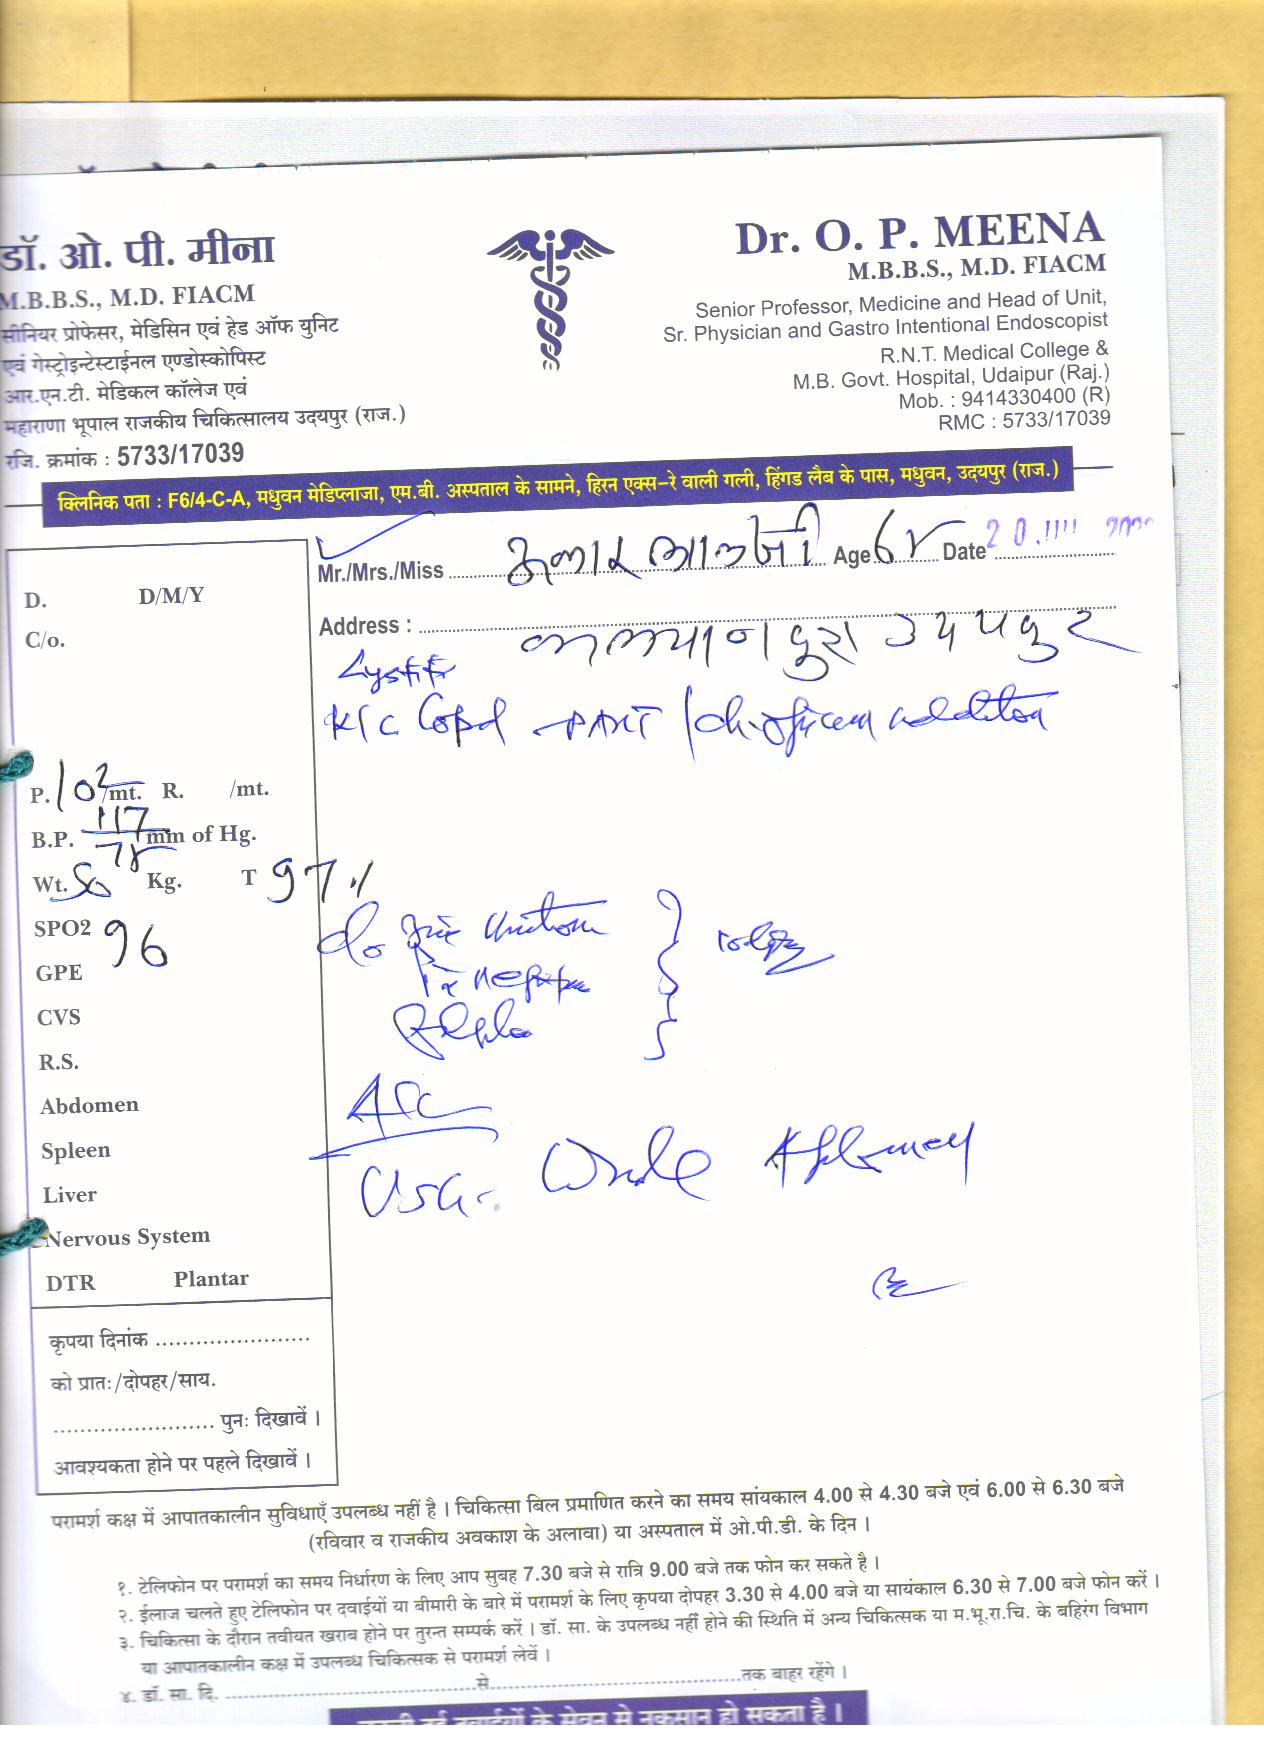 डॉ. ओ. पी. मीना
M.B.B.S., M.D. FIACM
सीनियर प्रोफेसर, मेडिसिन एवं हेड ऑफ युनिट
एवं गेस्ट्रोइन्टेस्टाईनल एण्डोस्कोपिस्ट
आर.एन.टी. मेडिकल कॉलेज एवं
महाराणा भूपाल राजकीय चिकित्सालय उदयपुर (राज.)
रजि. क्रमांक : 5733/17039
Dr. O. P. MEENA
M.B.B.S., M.D. FIACM
Senior Professor, Medicine and Head of Unit,
Sr. Physician and Gastro Intentional Endoscopist
R.N.T. Medical College &
M.B. Govt. Hospital, Udaipur (Raj.)
Mob. : 9414330400 (R)
RMC : 5733/17039
क्लिनिक पता : F6/4-C-A, मधुवन मेडिप्लाजा, एम.बी. अस्पताल के सामने, हिरन एक्स-रे वाली गली, हिंगड लैब के पास, मधुवन, उदयपुर (राज.)
Mr./Mrs./Miss Age Date 20
Address : उदयपुर
K/C COPD
D. D/M/Y
C/o.
P. 102 /mt. R. /mt.
B.P. 117 mm of Hg.
78
Wt. 50 Kg. T 97
SPO2 96
GPE
CVS
R.S.
Abdomen
Spleen
Liver
Nervous System
DTR Plantar
USG - Whole Abdomen
कृपया दिनांक
को प्रातः/दोपहर/साय.
पुनः दिखावें ।
आवश्यकता होने पर पहले दिखावें ।
परामर्श कक्ष में आपातकालीन सुविधाएँ उपलब्ध नहीं है । चिकित्सा बिल प्रमाणित करने का समय सांयकाल 4.00 से 4.30 बजे एवं 6.00 से 6.30 बजे
(रविवार व राजकीय अवकाश के अलावा) या अस्पताल में ओ.पी.डी. के दिन ।
१. टेलिफोन पर परामर्श का समय निर्धारण के लिए आप सुबह 7.30 बजे से रात्रि 9.00 बजे तक फोन कर सकते है ।
२. ईलाज चलते हुए टेलिफोन पर दवाईयों या बीमारी के बारे में परामर्श के लिए कृपया दोपहर 3.30 से 4.00 बजे या सायंकाल 6.30 से 7.00 बजे फोन करें ।
३. चिकित्सा के दौरान तबीयत खराब होने पर तुरन्त सम्पर्क करें । डॉ. सा. के उपलब्ध नहीं होने की स्थिति में अन्य चिकित्सक या म.भू.रा.चि. के बहिरंग विभाग
या आपातकालीन कक्ष में उपलब्ध चिकित्सक से परामर्श लेवें ।
४. डॉ. सा. दि. से तक बाहर रहेंगे ।
दवाईयों के सेवन से नुकसान हो सकता है ।